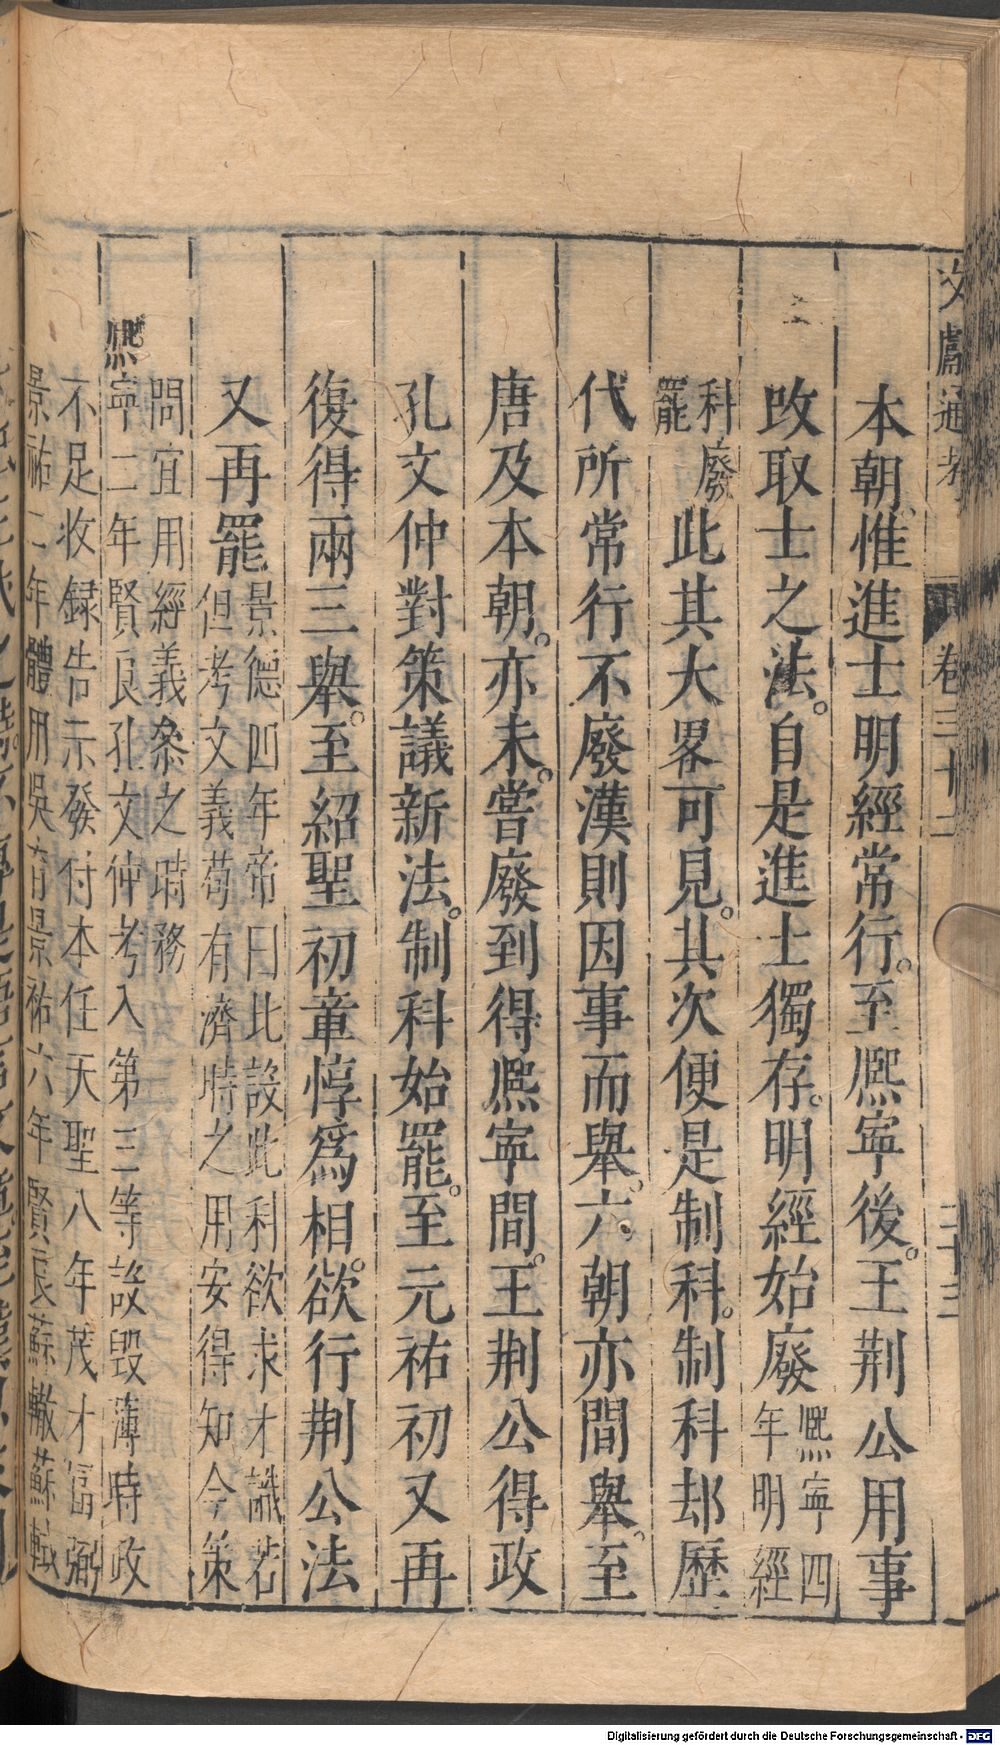 文獻通考 卷三十二 三十三
本朝惟進士明經常行。至熈寧後。王荆公用事
改取士之法。自是進士獨存。明經始廢熈寧四
年明經
科廢
罷此其大畧可見。其次便是制科。制科却歷
代所常行不廢漢則因事而舉。六朝亦間舉。至
唐及本朝。亦未嘗廢到得熈寧間。王荆公得政
孔文仲對策議新法。制科始罷。至元祐初又再
復得兩三舉。至紹聖初章惇爲相。欲行荆公法
又再罷景德四年帝曰此設此科欲求才識若
但考文義苟有濟時之用安得知今策
問宜用經義叅之時務
熈寧二年賢良孔文仲考入第三等設毀薄時政
不足收録告示發付本任天聖八年茂才富弼
景祐二年體用吳育景祐六年賢良蘇轍蘇軾
Digitalisierung gefördert durch die Deutsche Forschungsgemeinschaft - DFG